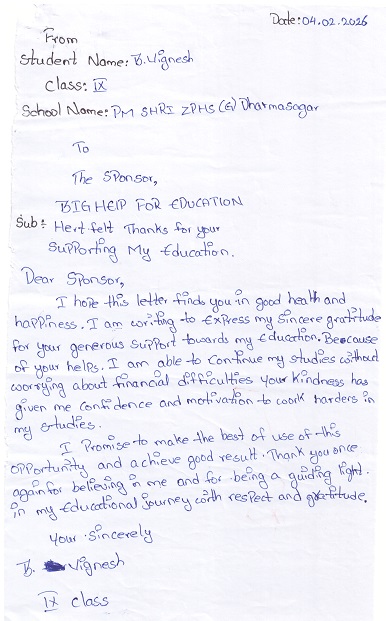 Date: 04.02.2026
From
Student Name: B. Vignesh
Class: IX
School Name: PM SHRI ZPHS (G) Dharmasagar
To
The Sponsor,
BIG HELP FOR EDUCATION
Sub: Hert felt Thanks for your
Supporting My Education.
Dear Sponsor,
I hope this letter finds you in good health and
happiness. I am writing to Express my sincere gratitude
for your generous support towards my Education. Beacause
of your helps. I am able to continue my studies without
worrying about financial difficulties your kindness has
given me confidence and motivation to work harders in
my studies.
I Promise to make the best of use of this
opportunity and achieve good result. Thank you once
again for believing in me and for being a guiding light.
in my Educational journey with respect and gratitude.
Your Sincerely
B. Vignesh
IX class